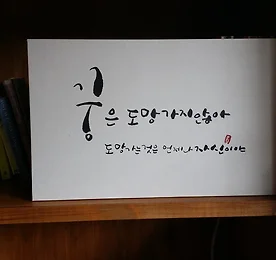 꿈은 도망가지않아
도망가는것은 언제나 자신이야